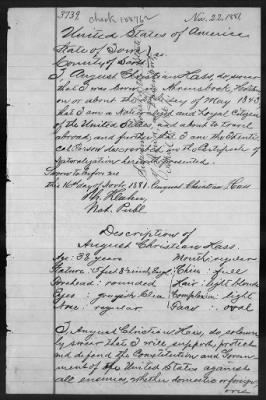 3739 check 10876 Nov. 22. 1881
United States of America
State of Iowa
County of Scott } ss.
I August Christian Hass, do swear
that I was born in
on or about the day of May 1843
that I am a Naturalized and loyal Citizen
of the United States, and about to travel
abroad, and further that I am the identi-
cal Person described in the Certificate of
Naturalization herewith presented.
Sworn to before me
this 16th day of Novbr. 1881. August Christian Hass
Not. Publ.
Description of
August Christian Hass.
Age: 38 years Mouth: regular
Stature: 5 feet 8 inch, Eng. Chin: full
Forehead: rounded Hair: light blonde
Eyes: Complexion: light
Nose: regular Face: oval
I August Christian Hass, do solemn-
ly swear that I will support, protect
and defend the Constitution and Govern-
ment of the United States against
all enemies, whether domestic or foreign